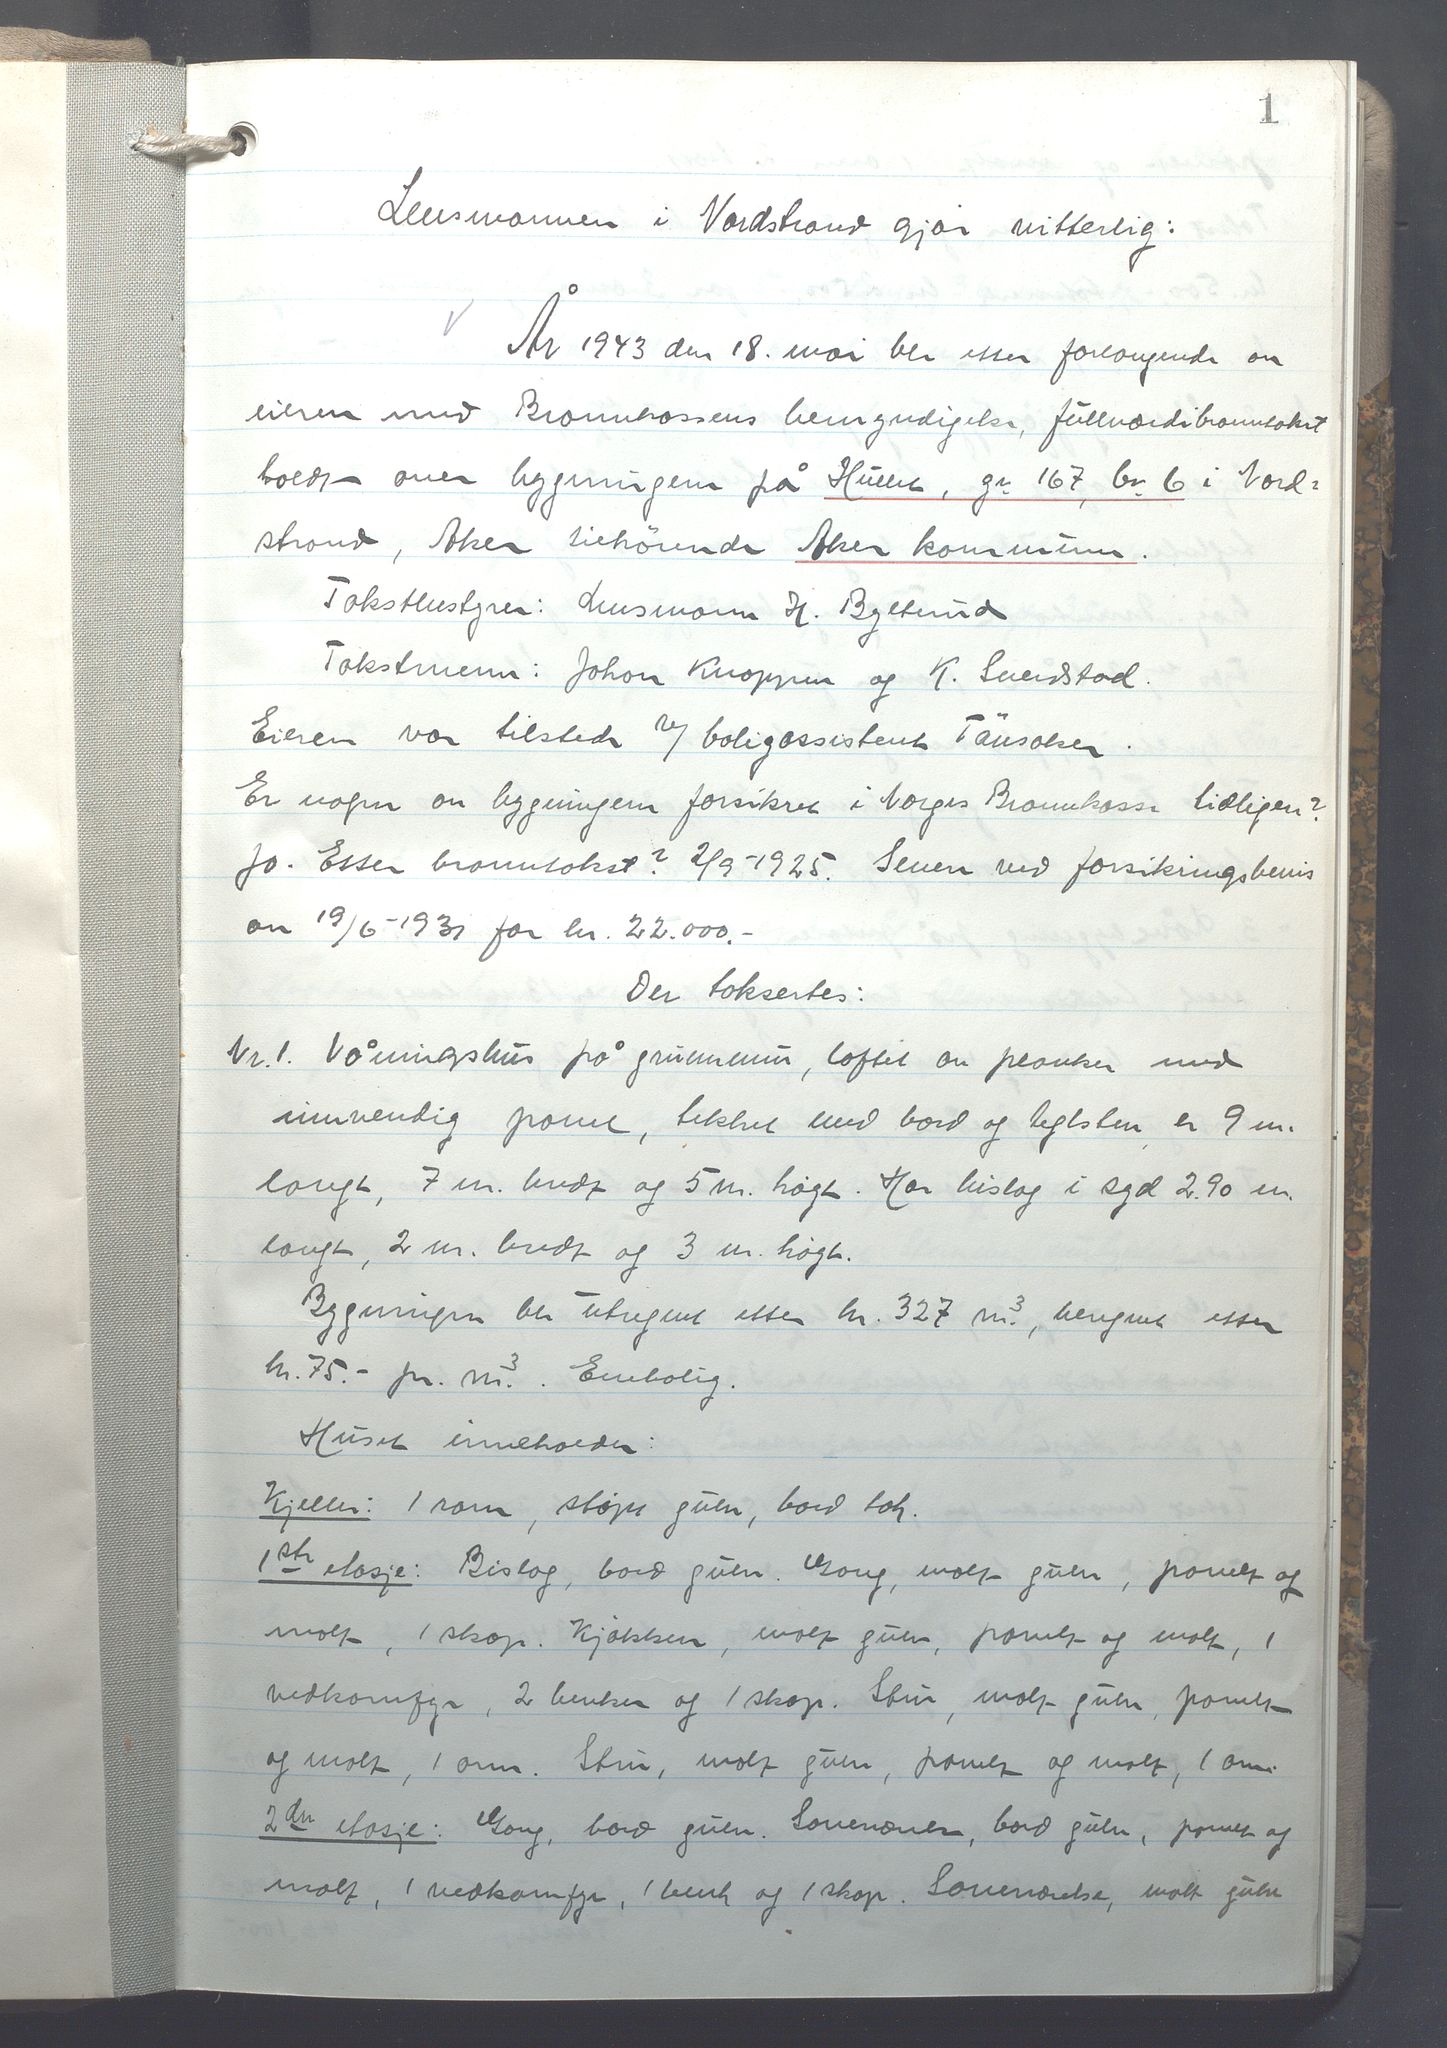 1
Lensmannen i Nordstrand gjør vitterlig:
År 1943 den 18. mai ble etter forlangende av
eieren med Brannkassens bemyndigelse, fullverdibranntakst
holdt over bygningen på Hullet, gr. 167, br. 6 i Nord-
strand, Aker tilhørende Aker kommune.
Takstbestyrer: Lensmann H. Bylterud
Takstmenn: Johan Knappen og K. Sverdstad.
Eieren var tilstede v/ boligassistent
Er nogen av bygningene forsikret i Norges Brannkasse tidligere?
Ja. Etter branntakst? 2/9-1925. Senere ved forsikringsbevis
av 19/6-1931 for kr. 22.000.-
Der taksertes:
Nr. 1. Våningshus på grunnmur, laftet av planker med
innvendig panel, tekket med bord og teglsten, er 9 m.
langt, 7 m. bredt og 5 m. høgt. Har bislag i syd 2.90 m.
langt, 2 m. bredt og 3 m. høgt.
Bygningen ble utregnet etter kr. 327 m³, beregnet etter
kr. 75.- pr. m³. Enebolig.
Huset inneholder:
Kjeller: 1 rom, støpt gulv, bord tak.
1ste etasje: Bislag, bord gulv. Gang, malt gulv, panelt og
malt, 1 skap. Kjøkken, malt gulv, panelt og malt, 1
vedkomfyr, 2 benker og 1 skap. Stue, malt gulv, panelt
og malt, 1 ovn. Stue, malt gulv, panelt og malt, 1 ovn.
2den etasje: Gang, bord gulv. Soveværelse, bord gulv, panelt og
malt, 1 vedkomfyr, 1 benk og 1 skap. Soveværelse, malt gulv